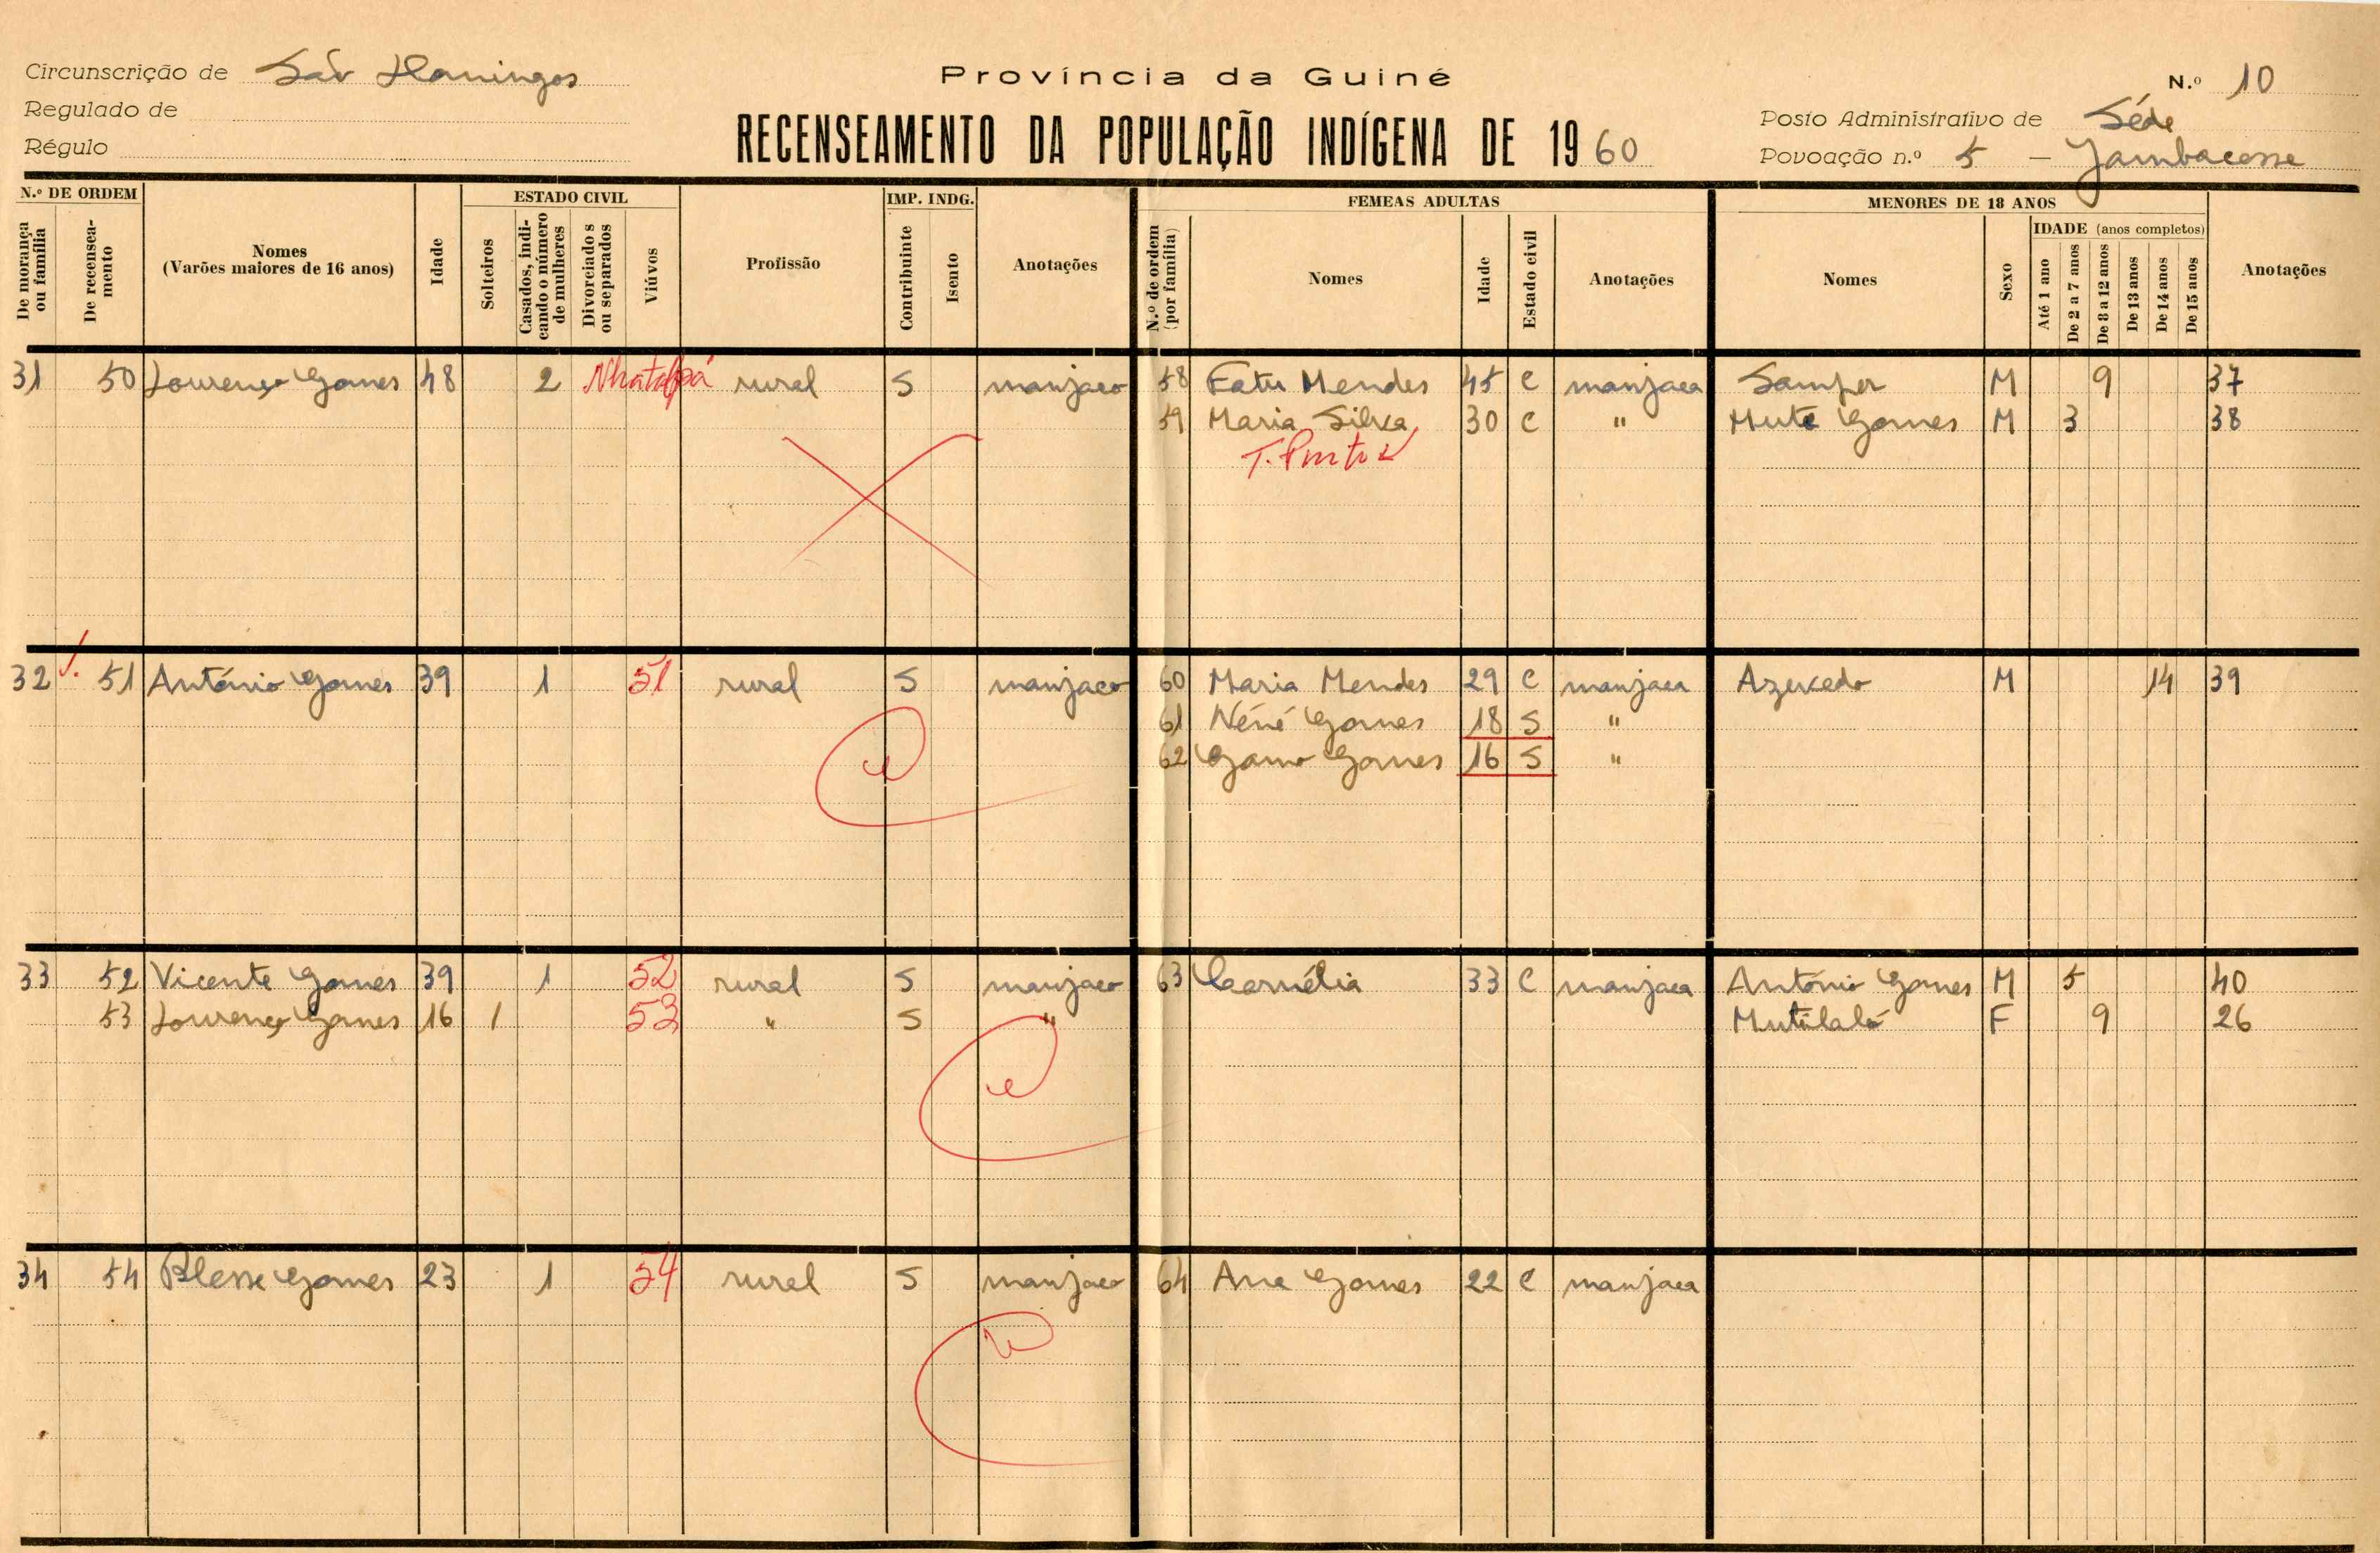 Circunscrição de São Domingos
Regulado de
Régulo
Província da Guiné
RECENSEAMENTO DA POPULAÇÃO INDÍGENA DE 1960
N.º 10
Posto Administrativo de Séde
Povoação n.º 5 – Jambacosse
N.º DE ORDEM
De morança ou família
De recenseamento
Nomes
(Varões maiores de 16 anos)
Idade
ESTADO CIVIL
Solteiros
Casados, indicando o número de mulheres
Divorciados ou separados
Viúvos
Profissão
IMP. INDG.
Contribuinte
Isento
Anotações
FEMEAS ADULTAS
N.º de ordem (por família)
Nomes
Idade
Estado civil
Anotações
MENORES DE 18 ANOS
Nomes
Sexo
IDADE (anos completos)
Até 1 ano
De 2 a 7 anos
De 8 a 12 anos
De 13 anos
De 14 anos
De 15 anos
Anotações
31 50 Lourenço Gomes 48 2 rural S manjaco 58 Fatu Mendes 45 C manjaca Samper M 9 37
59 Maria Silva 30 C " Mute Gomes M 3 38
32 51 António Gomes 39 1 51 rural S manjaco 60 Maria Mendes 29 C manjaca Azevedo M 14 39
61 Néné Gomes 18 S "
62 Gamo Gomes 16 S "
33 52 Vicente Gomes 39 1 52 rural S manjaco 63 Cornélia 33 C manjaca António Gomes M 5 40
53 Lourenço Gomes 16 1 53 " S " Mutilaló F 9 26
34 54 Blesse Gomes 23 1 54 rural S manjaco 64 Ana Gomes 22 C manjaca